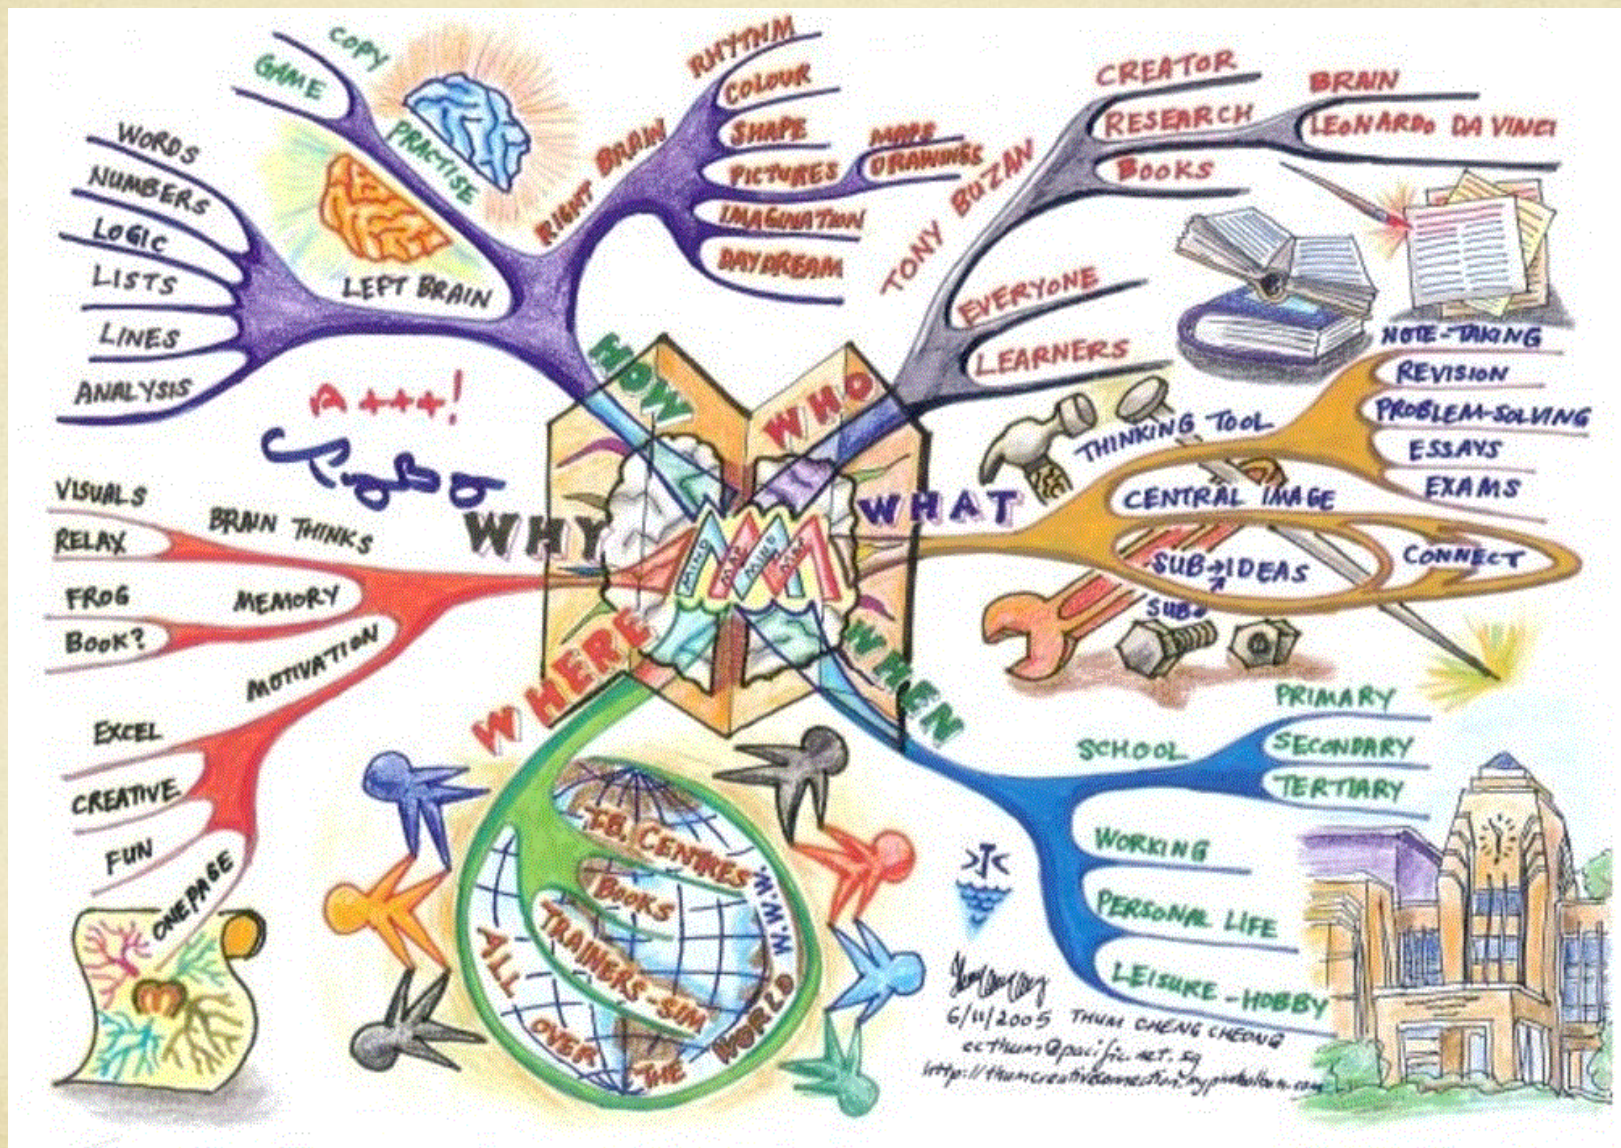 MIND MAP MIND MAP
HOW
LEFT BRAIN
WORDS
NUMBERS
LOGIC
LISTS
LINES
ANALYSIS
PRACTISE
COPY
GAME
RIGHT BRAIN
RHYTHM
COLOUR
SHAPE
PICTURES
MAPS
DRAWINGS
IMAGINATION
DAYDREAM
WHO
TONY BUZAN
CREATOR
RESEARCH
BRAIN
LEONARDO DA VINCI
BOOKS
EVERYONE
LEARNERS
WHAT
THINKING TOOL
NOTE-TAKING
REVISION
PROBLEM-SOLVING
ESSAYS
EXAMS
CENTRAL IMAGE
SUB→IDEAS
SUB
CONNECT
WHEN
SCHOOL
PRIMARY
SECONDARY
TERTIARY
WORKING
PERSONAL LIFE
LEISURE-HOBBY
WHERE
T.B. CENTRES
BOOKS
TRAINERS-SIM
W.W.W.
ALL OVER THE WORLD
WHY
BRAIN THINKS
VISUALS
RELAX
MEMORY
FROG
BOOK?
MOTIVATION
EXCEL
CREATIVE
FUN
ONE PAGE
A+++!
6/11/2005 THUM CHENG CHEONG
ccthum@pacific.net.sg